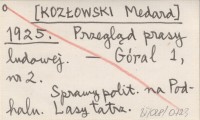 [KOZŁOWSKI Medard]
1925. Przegląd prasy
ludowej. — Góral 1,
nr 2.
Sprawy polit. na Pod-
halu. Lasy tatrz.